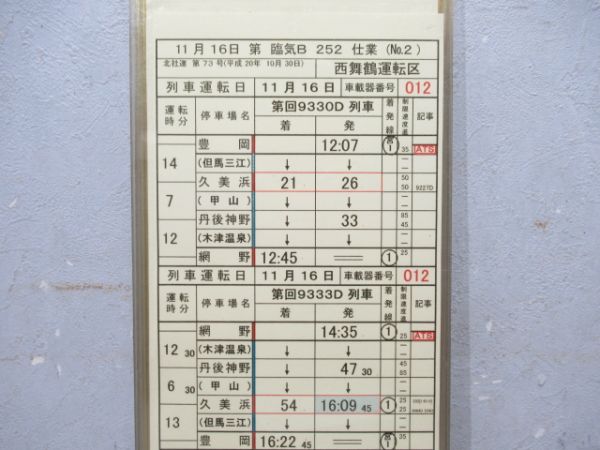 11月16日 第 臨気B 252 仕業 (No.2)
北社達 第 73 号(平成 20年 10月 30日) 西舞鶴運転区
列車運転日 11月16日 車載器番号 012
運転時分 停車場名 第回9330D 列車 着発線 制限速度 記事
着 発
豊岡 12:07 宮1 35 ATS
14 (但馬三江) ↓ ↓
久美浜 21 26 50 50 9227D
7 (甲山) ↓ ↓
丹後神野 33 85 45
12 (木津温泉) ↓ ↓
網野 12:45 ① 25
列車運転日 11月16日 車載器番号 012
運転時分 停車場名 第回9333D 列車 着発線 制限速度 記事
着 発
網野 14:35 ① 25 ATS
12 30 (木津温泉) ↓ ↓
丹後神野 47 30 45 85
6 30 (甲山) ↓ ↓
久美浜 54 16:09 45 ① 25 25
13 (但馬三江) ↓ ↓
豊岡 16:22 45 宮1 35